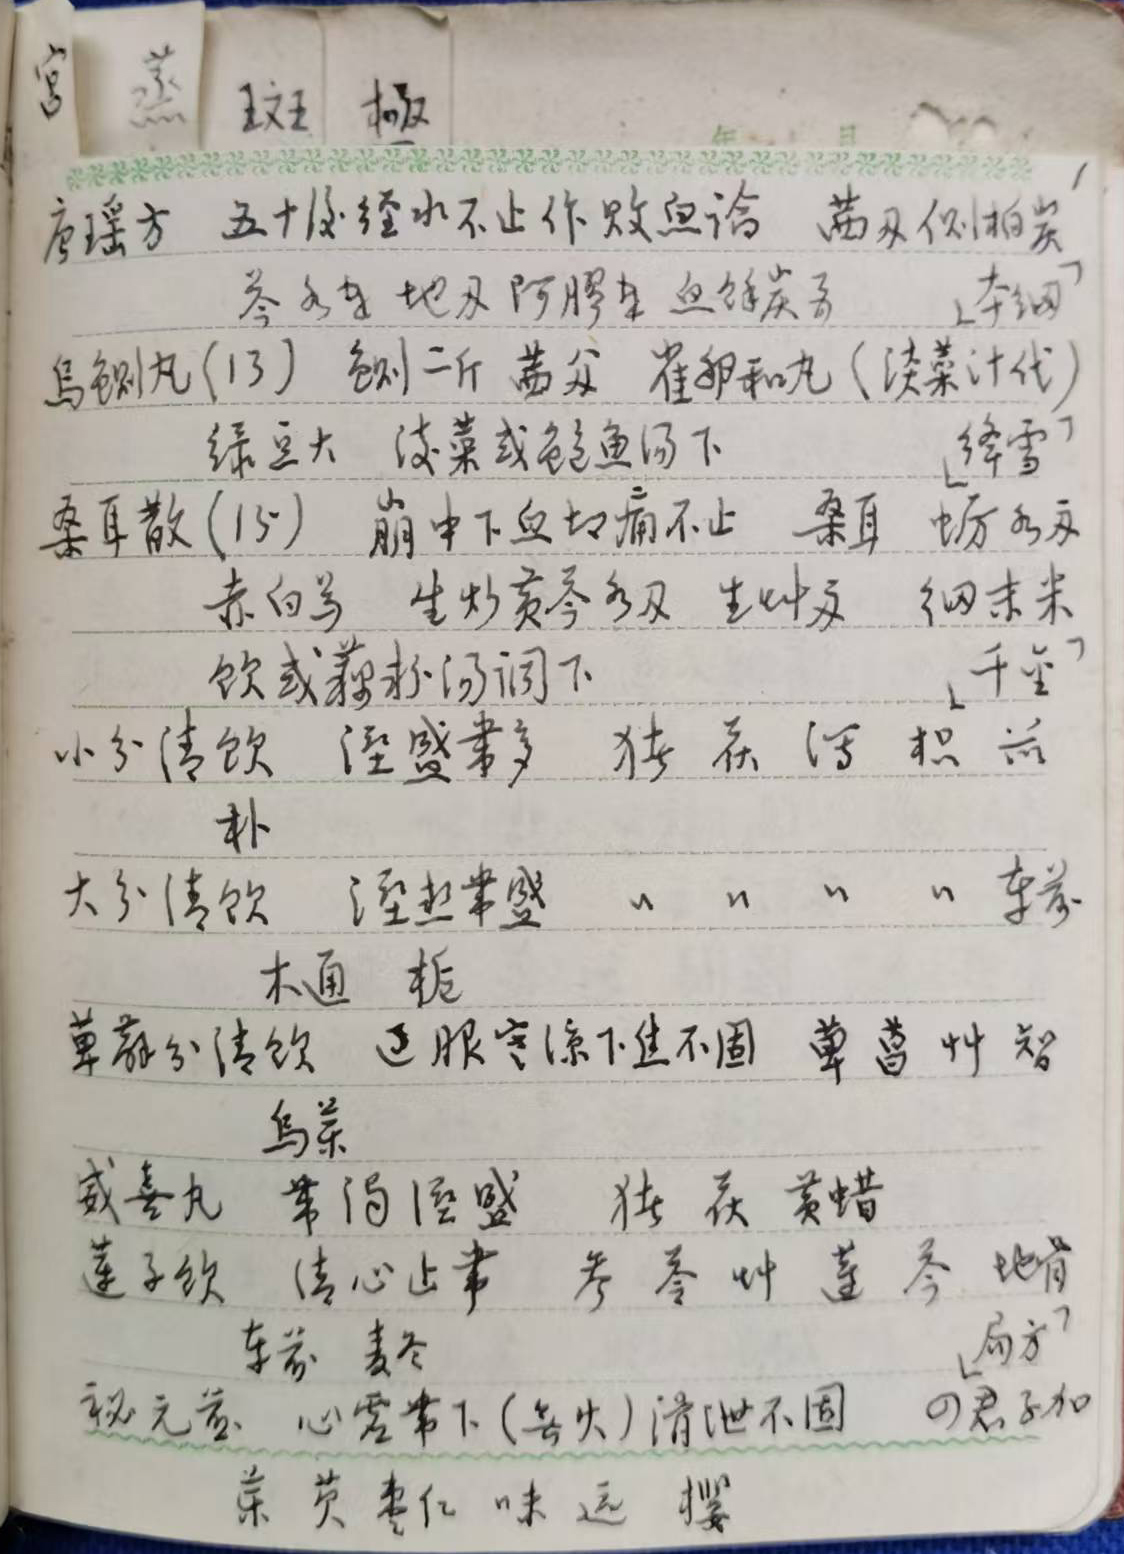 宫 蒸 斑 極
年 月
1
唐瑶方 五十後经水不止作败血论 茜 侧柏炭
芩 地 阿膠 血馀炭 「本纲」
乌鲗丸(13) 鲗二斤 茜 雀卵和丸(淡菜汁代)
绿豆大 淡菜或鲍鱼汤下 「绛雪」
桑耳散(15) 崩中下血切痛不止 桑耳 蛎
赤白芍 生炒黄芩 生艸 细末米
饮或藕粉汤调下 「千金」
小分清饮 湿盛带多 猪 茯 泻 枳
朴
大分清饮 湿热带盛 〃 〃 〃 〃 车前
木通 栀
萆薢分清饮 过服寒凉下焦不固 萆 菖 艸 智
乌药
威喜丸 带浊湿盛 猪 茯 黄蜡
莲子饮 清心止带 参 苓 艸 莲 芩 地骨
车前 麦冬 「局方」
秘元煎 心虚带下(无火)滑泄不固 四君子加
药 芡 枣仁 味 远 樱